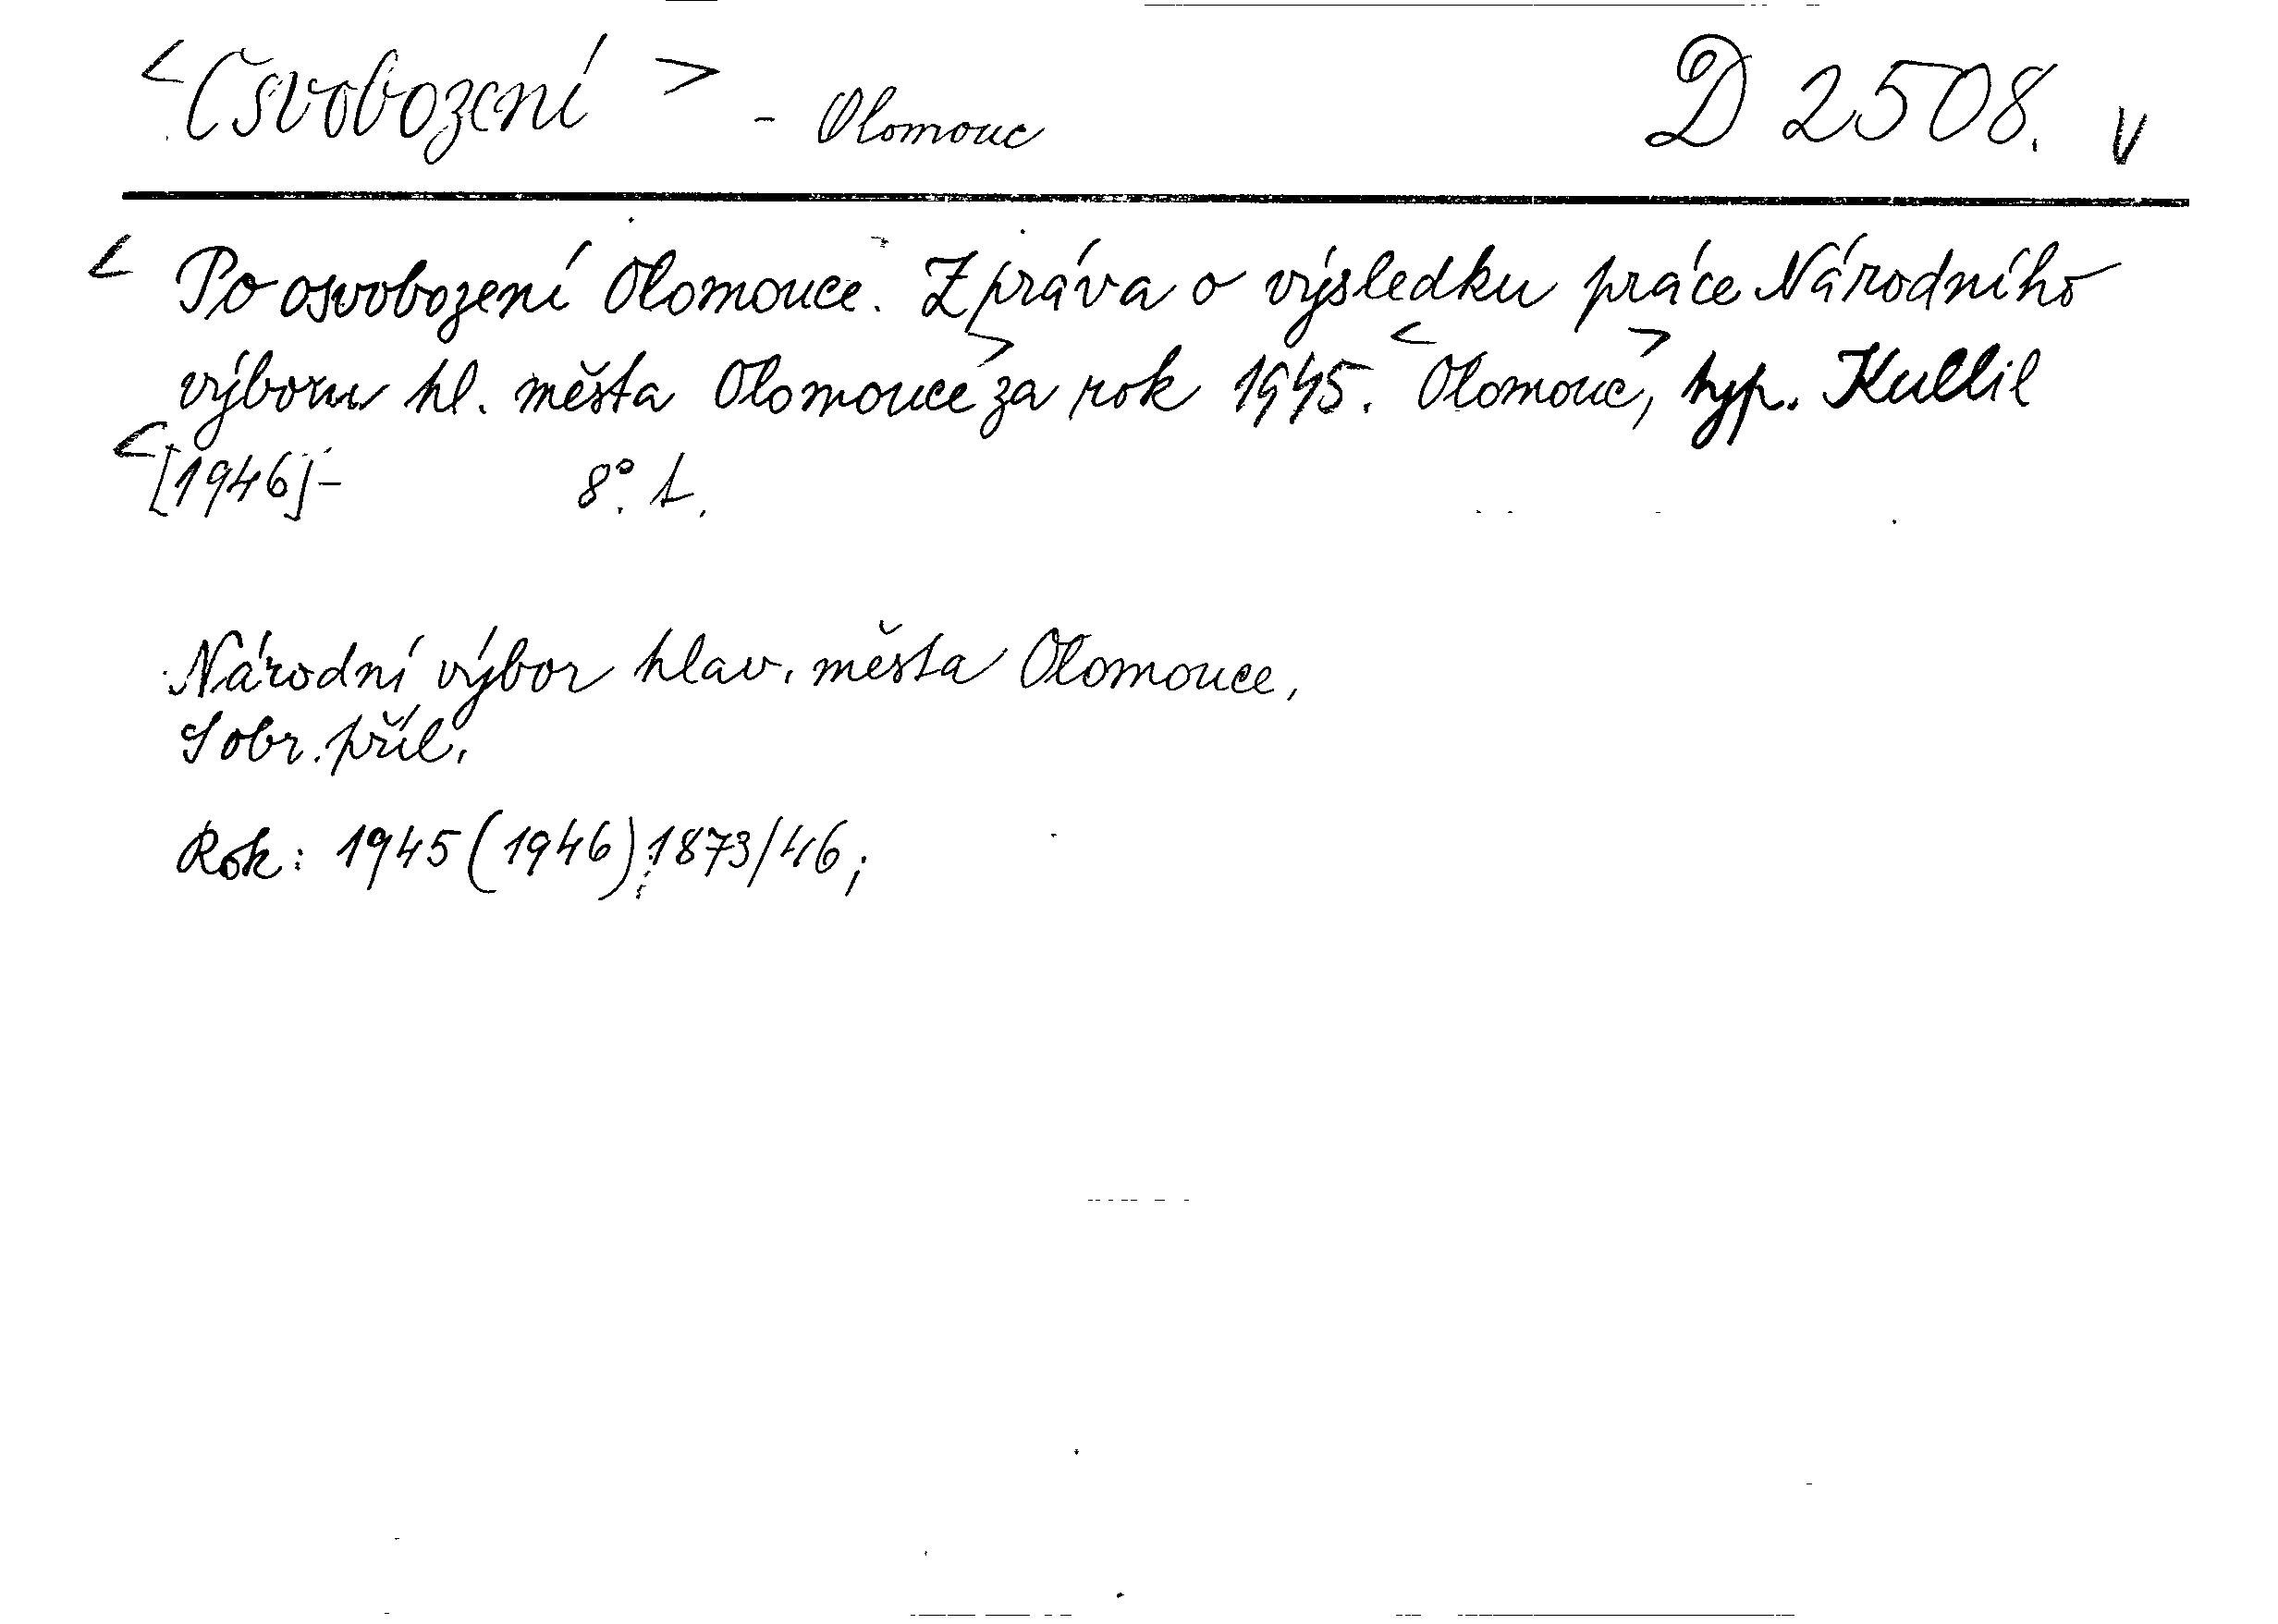 <Osvobození> - Olomouc D 2508. V
<Po osvobození Olomouce. Zpráva o výsledku práce Národního
výboru hl. města Olomouce> za rok 1945. <Olomouc>, typ. Kullil
<[1946]- 8°. L.
Národní výbor hlav. města Olomouce,
S obr. příl.
Rok: 1945 (1946) 1873/46;